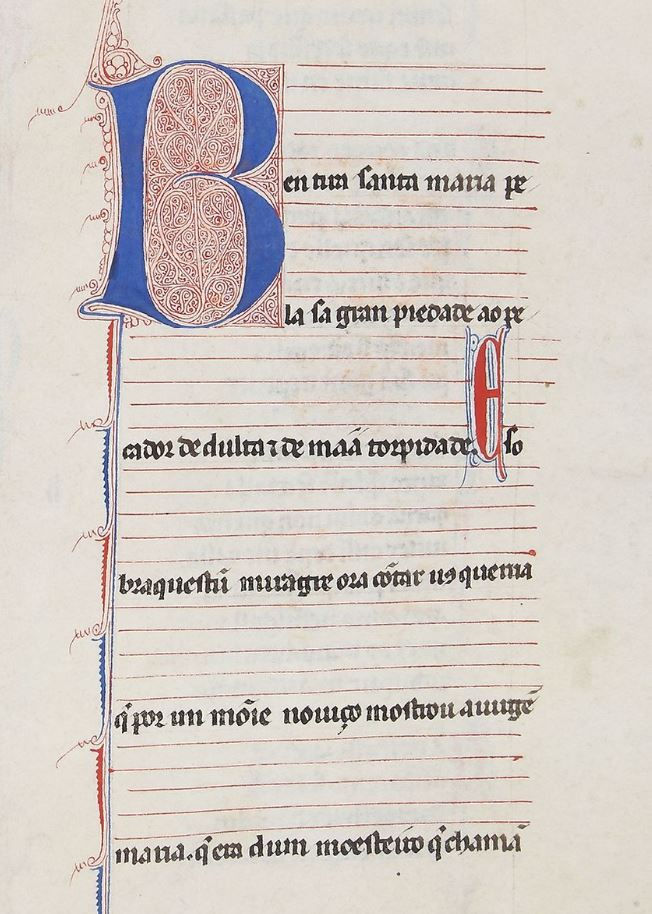 Ben tira santa maria pe
la sa gran piedade ao pe
cador de dulta ⁊ de maã torpidade. E so
braquestũ miragre ora cõtar uꝯ querria
q̃ por un mõie nouiço mostrou a uirgẽ
maria. q̃ era dun moesteiro q̃ chamã